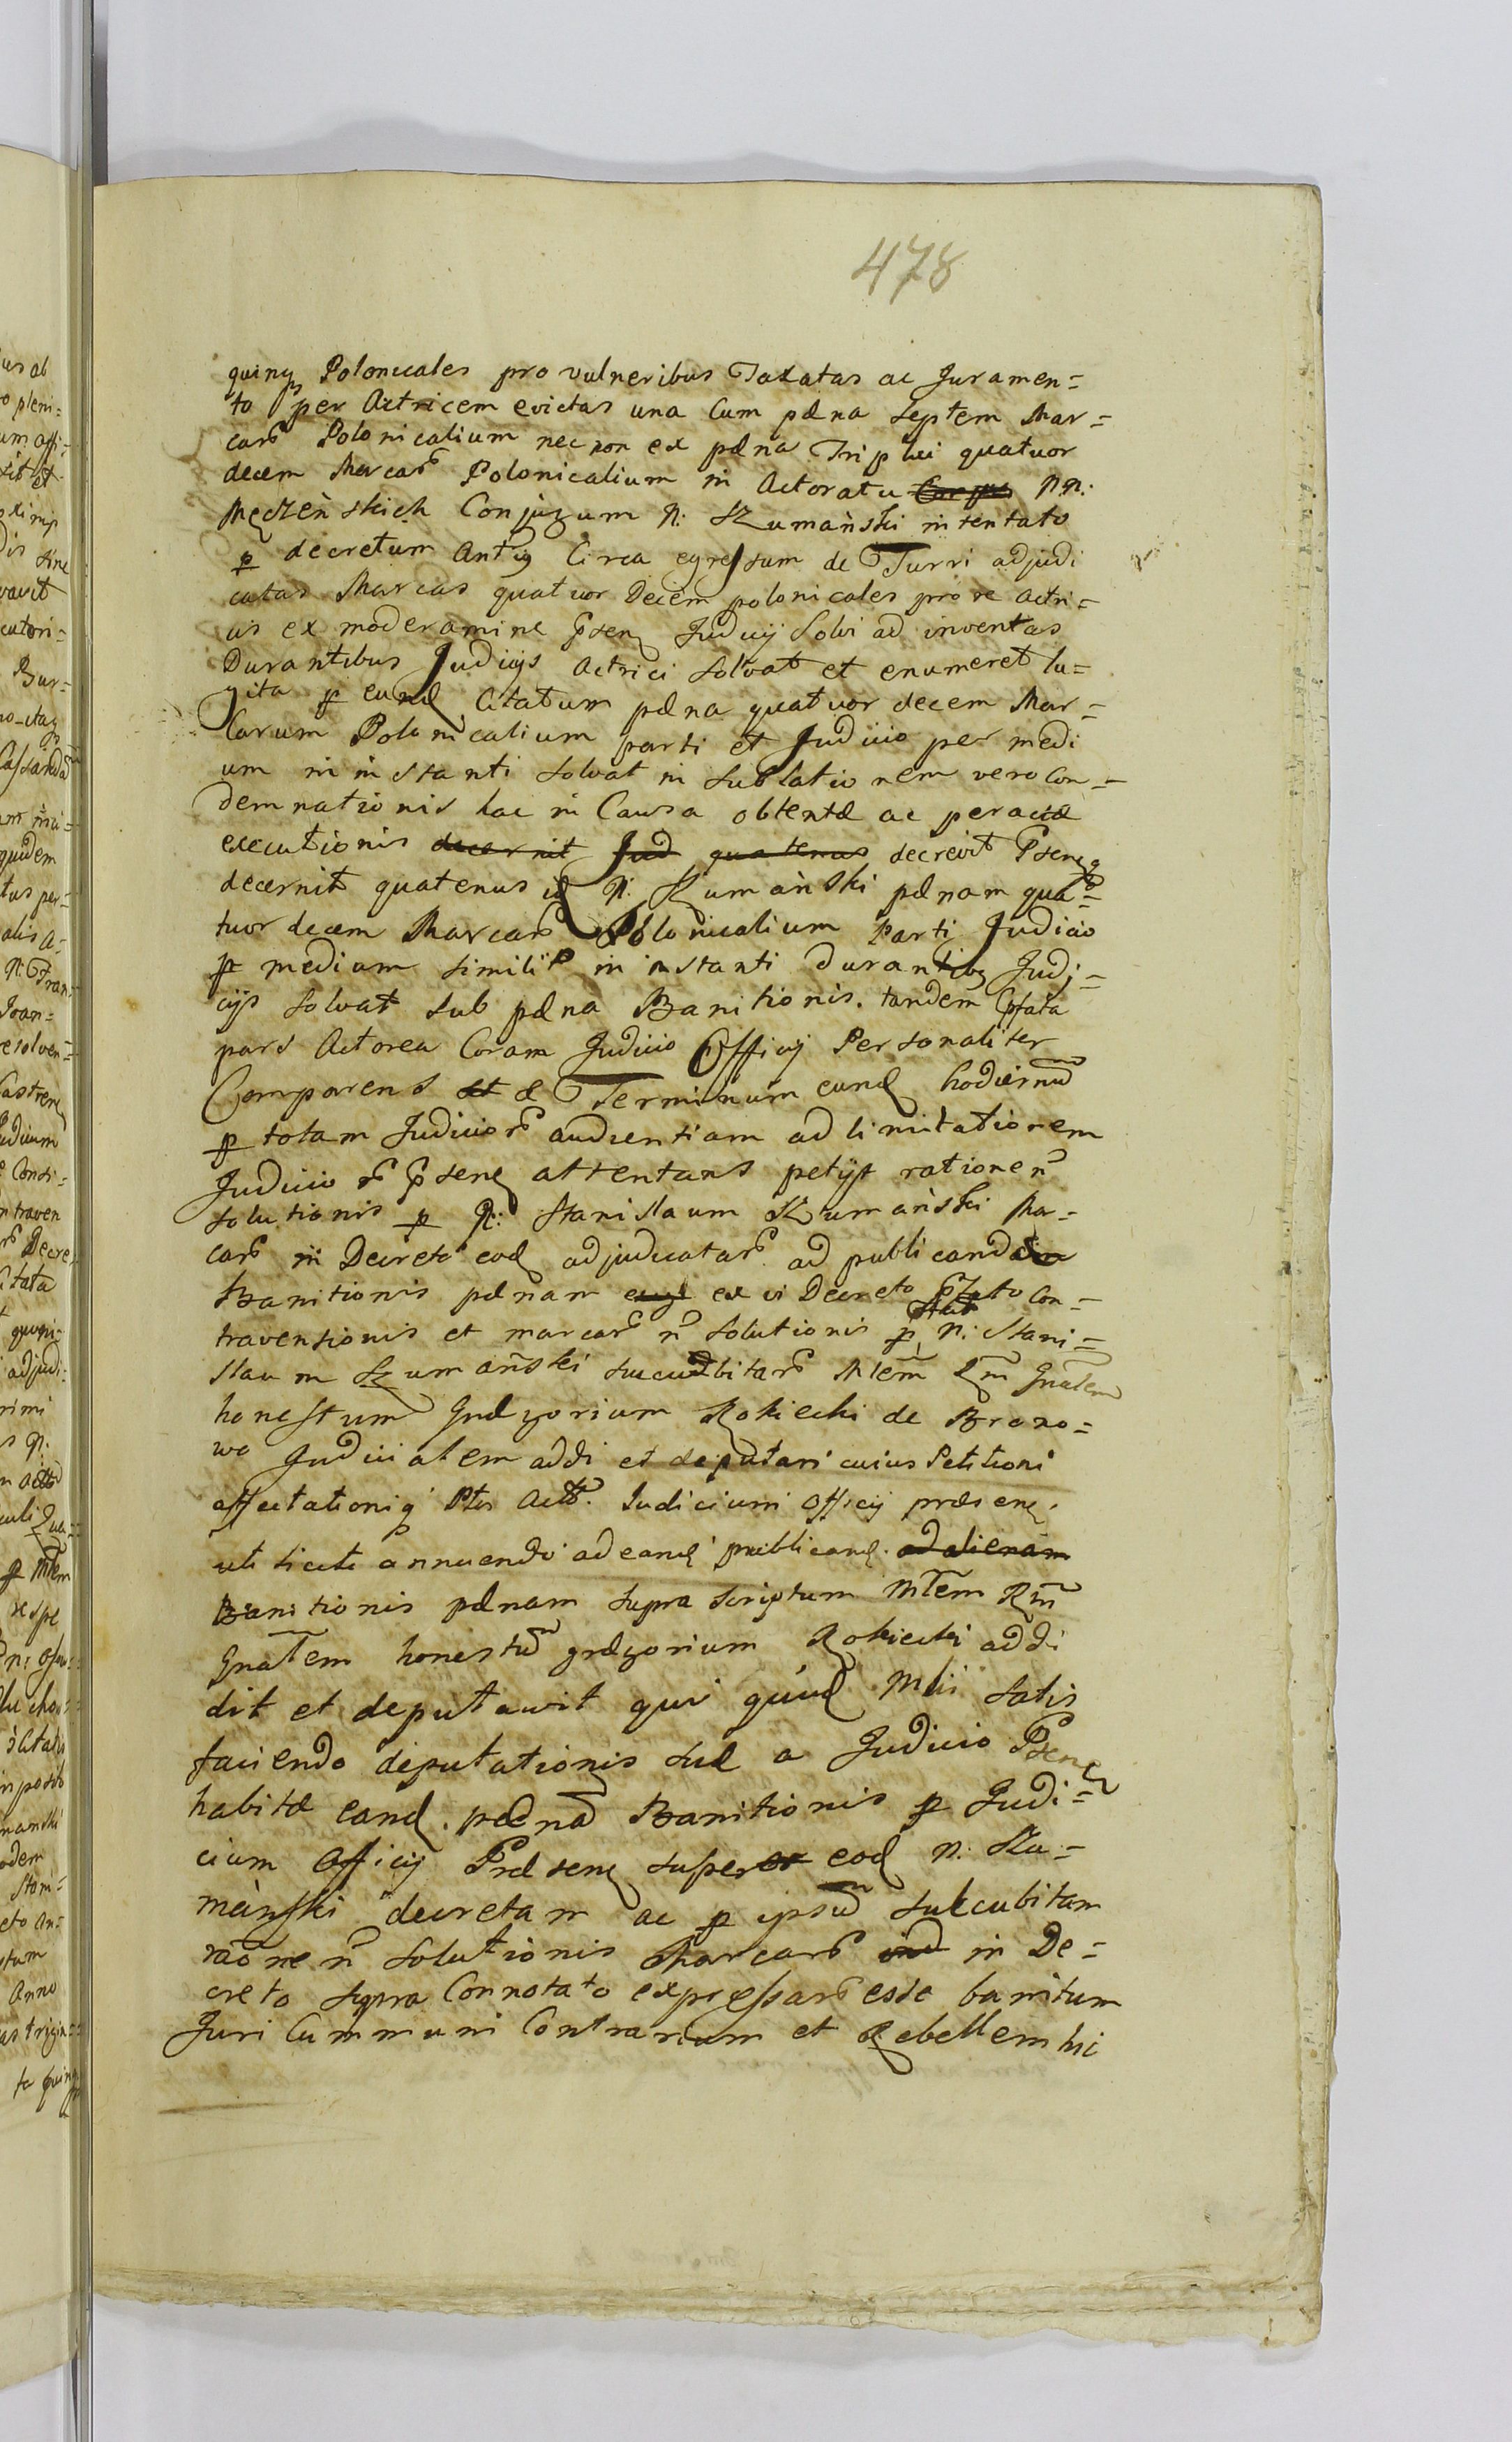 478
quinq Polonicales pro vulneribus Taxatas ac Juramen=
to per Actricem evictas una Cum pæna septem Mar=
car Polonicalium nec non ex pæna Triplici quatuor
decem Marcar Polonicalium in Actoratu NN:
Męczènskich Conjugum N: Szumański intentato
p decretum Antiq Circa egressum de Turri adjudi
catas Marcas quatuor Decem polonicales pro re actri=
cis ex moderamine Psen Judicij Solvi ad inventas
Durantibus Judicijs Actrici solvat et enumeret lu=
gita p eund Citatum pæna quatuor decem Mar=
Carum Polonicalium parti et Judicio per medi
um in instanti solvat in sublationem vero Con=
demnationis hac in Causa obtentæ ac peractæ
executionis decernit Jud quatenus decrevit Psen q
decernit quatenus id N: Szumański pænam qua=
tuor decem Marcar Polonicalium Parti Judicio
p medium similit in instanti durantibq Judi=
cijs solvat sub pæna Banitionis. tandem Pfata
pars Actorea Coram Judicio Officij Personaliter
Comparens et & Terminum eund hodiernu
p totam Judicior audientiam ad limitationem
Judicior Psen attentans petijt ratione n
solutionis p N: Stanislaum Szumański Mar=
car in Decreto eod adjudicatar ad publicandam
Banitionis pænam ex vi Decreto Pfato Con=
traventionis et marcar n solutionis p N: Stani=
slaum Szumański succubitar Mtem Rm Gnalem
honestum Grægorium Rokiecki de Brono=
wo Judicialem addi et deputari cuius Petitioni
affectationiq Ptis Act. Iudicium Officij præsen.
uti licite annuendo ad eand publicand. ad alienam
Banitionis pænam supra scriptum Mtem Rm
Gnalem honestu grægorium Rokiecki addi
dit et deputavit qui quid Mtii satis
faciendo deputationis suæ a Judicio Psen
habitæ eand. pænam Banitionis p Judi=
cium Officij Præsen super eod N: Szu=
mański decretam ac p ipsu succubitam
raone n solutionis Marcar in De=
creto supra Connotato expressar esse banitum
Juri Cummuni Contrarium et Rebellem hic